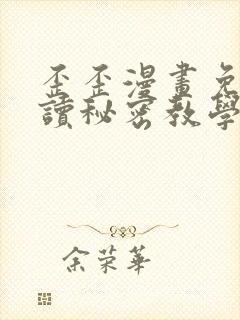 歪歪漫畫免
讀秘密教學
余荣華